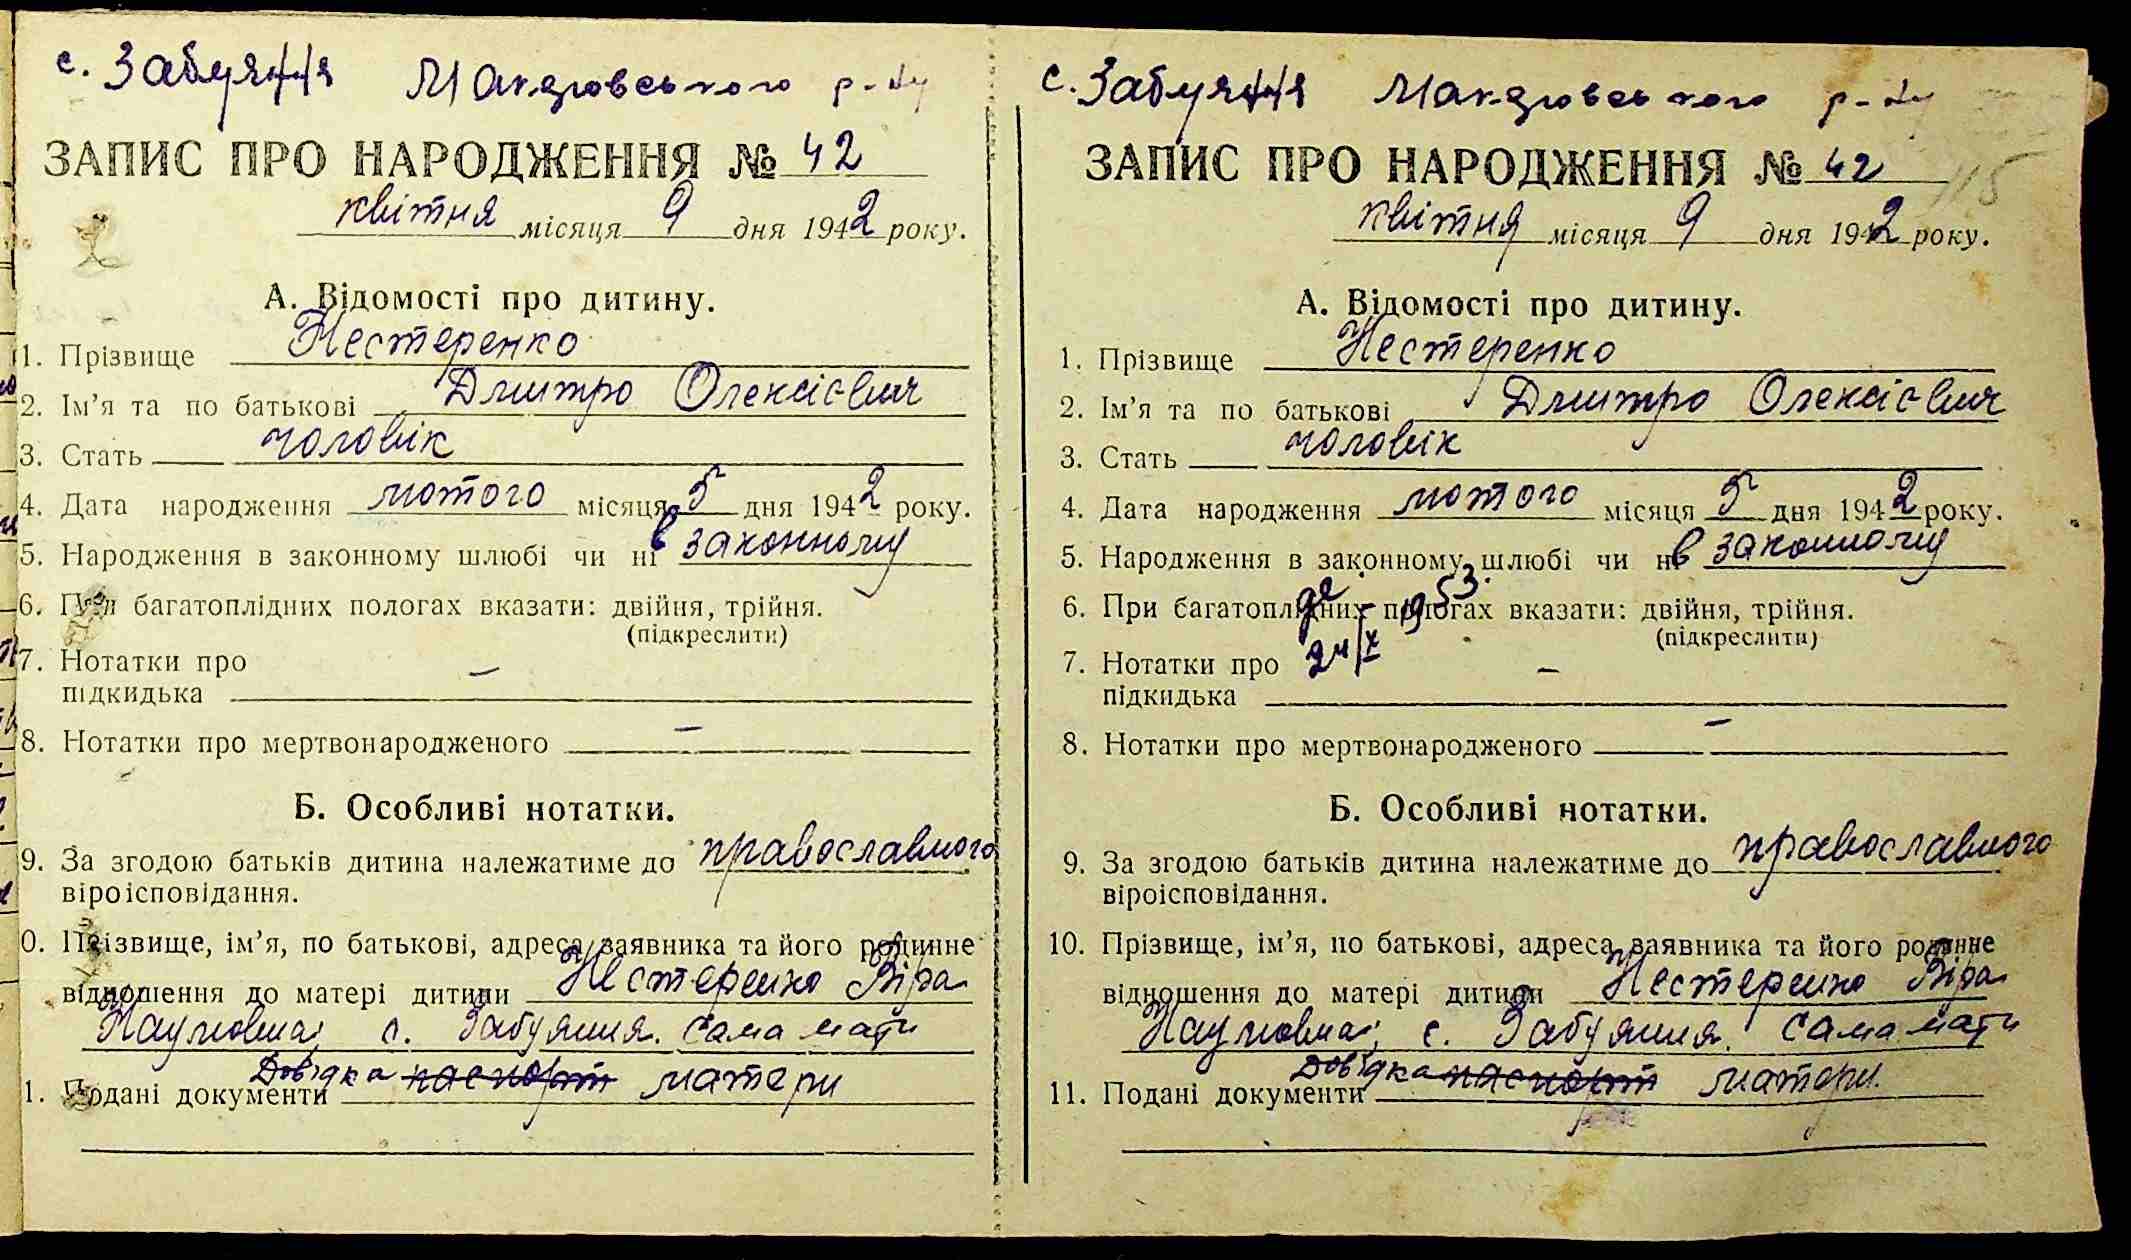 с. Забуяння Макарівського р-ну
ЗАПИС ПРО НАРОДЖЕННЯ № 42
квітня місяця 9 дня 1942 року.
А. Відомості про дитину.
1. Прізвище Нестеренко
2. Ім'я та по батькові Дмитро Олексієвич
3. Стать чоловік
4. Дата народження лютого місяця 5 дня 1942 року.
5. Народження в законному шлюбі чи ні в законному
6. При багатоплідних пологах вказати: двійня, трійня.
(підкреслити)
7. Нотатки про
підкидька –
8. Нотатки про мертвонародженого –
Б. Особливі нотатки.
9. За згодою батьків дитина належатиме до православного
віроісповідання.
0. Прізвище, ім'я, по батькові, адреса заявника та його родинне
відношення до матері дитини Нестеренко Віра
Наумовна, с. Забуяння. сама мати
1. Подані документи Довідка паспорт матери
с. Забуяння Макарівського р-ну
ЗАПИС ПРО НАРОДЖЕННЯ № 42
115
квітня місяця 9 дня 1942 року.
А. Відомості про дитину.
1. Прізвище Нестеренко
2. Ім'я та по батькові Дмитро Олексієвич
3. Стать чоловік
4. Дата народження лютого місяця 5 дня 1942 року.
5. Народження в законному шлюбі чи ні в законному
6. При багатоплідних пологах вказати: двійня, трійня.
(підкреслити)
24/X 1953.
7. Нотатки про
підкидька –
8. Нотатки про мертвонародженого –
Б. Особливі нотатки.
9. За згодою батьків дитина належатиме до православного
віроісповідання.
10. Прізвище, ім'я, по батькові, адреса заявника та його родинне
відношення до матері дитини Нестеренко Віра
Наумовна, с. Забуяння. сама мати
11. Подані документи Довідка паспорт матери.